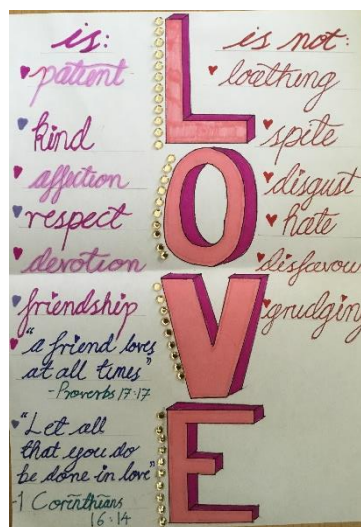 is:
patient
kind
affection
respect
devotion
friendship
"a friend loves
at all times"
-Proverbs 17:17
"Let all
that you do
be done in love"
-1 Corinthians
16:14
LOVE
is not:
loathing
spite
disgust
hate
disfavour
grudging